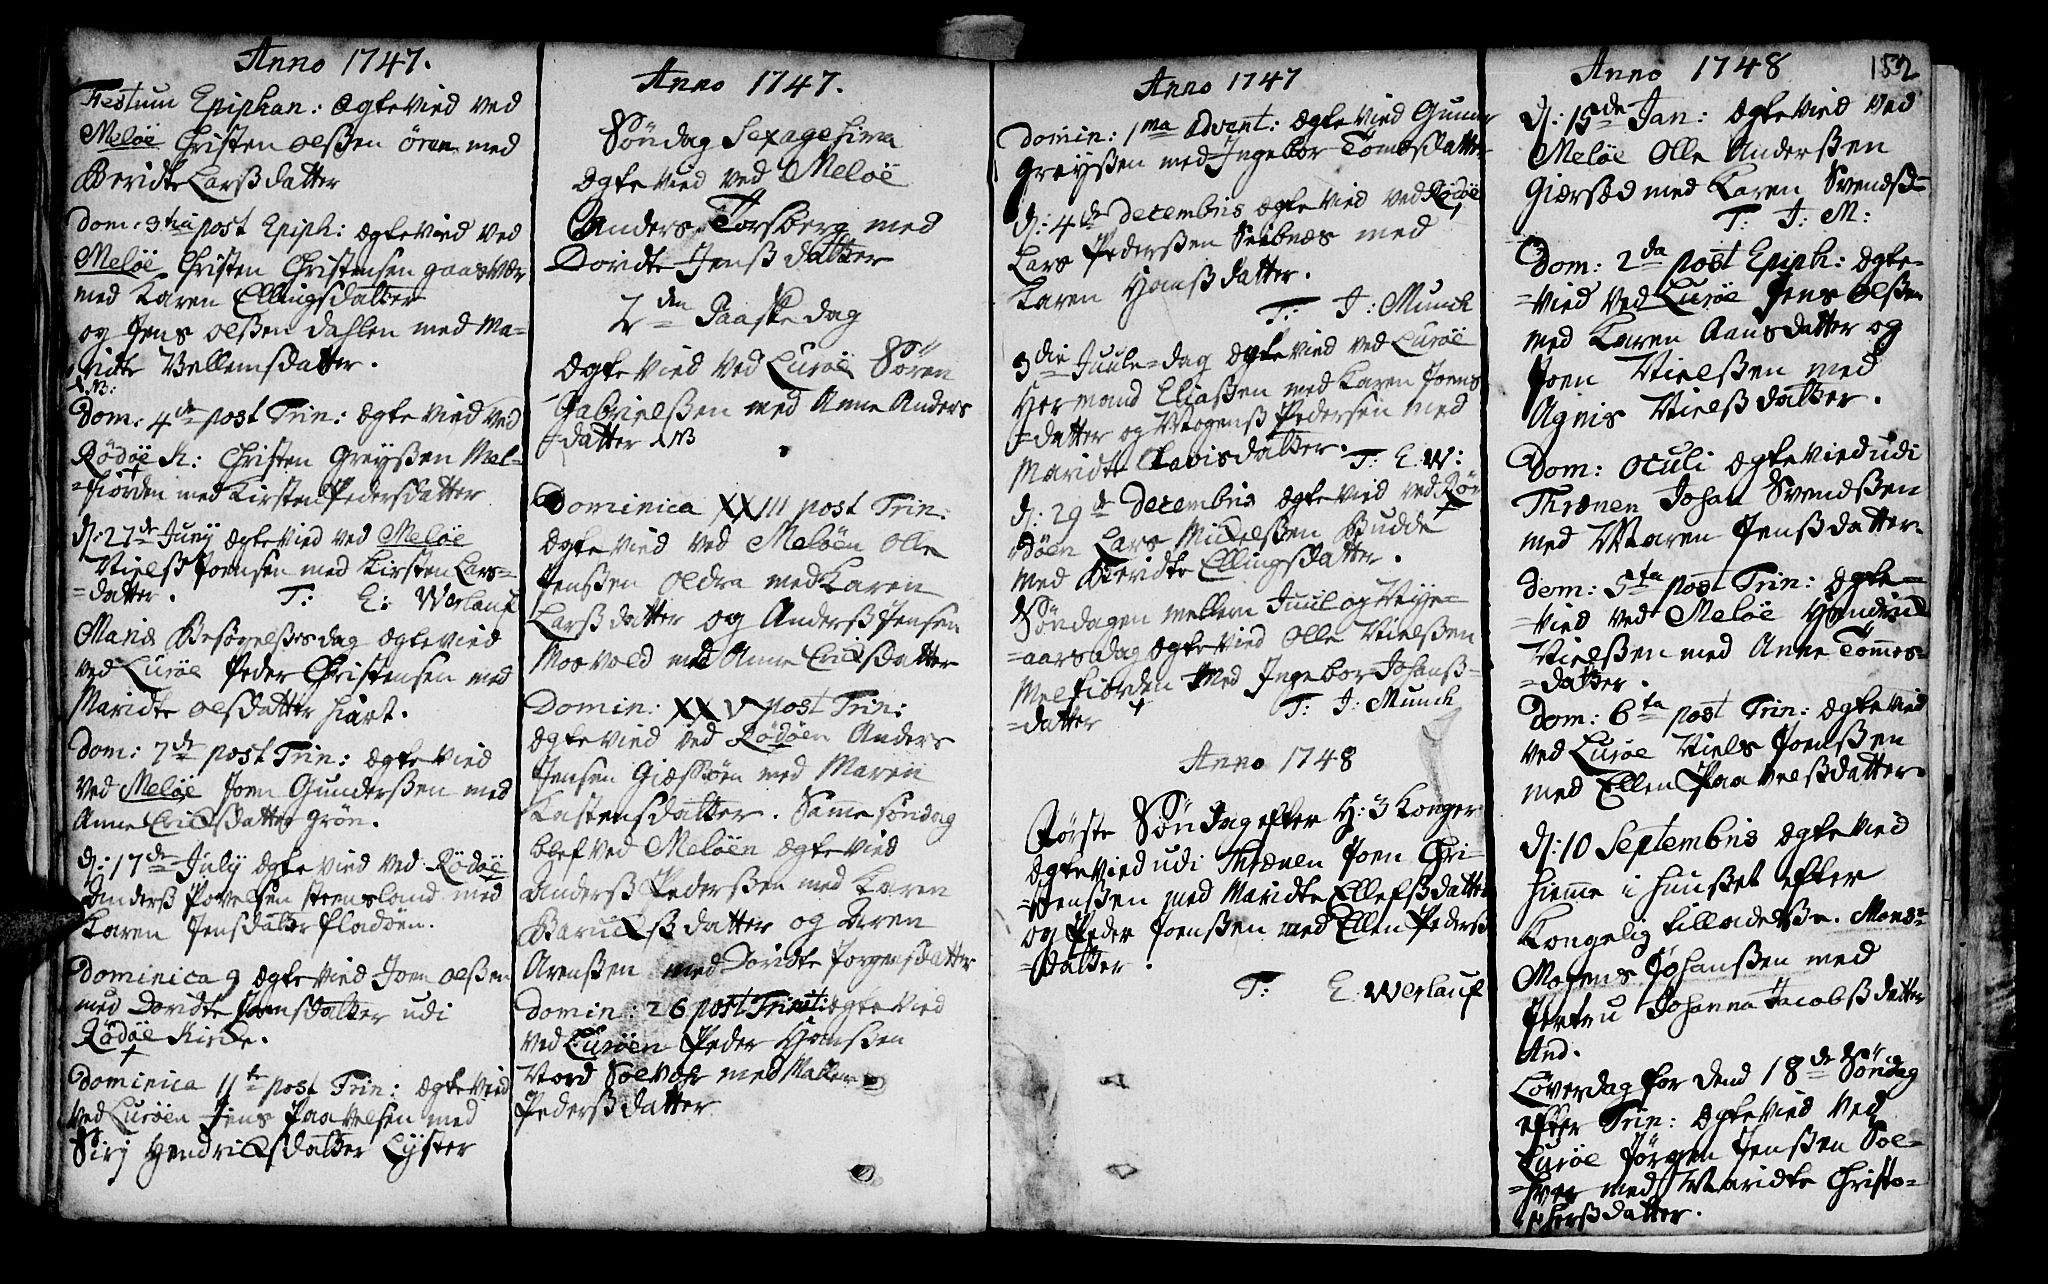 Anno 1747.
Festum Epiphan: ægtevied ved
Meløe Christen Olsßen ören med
Beridte Larsßdatter
Dom: 3tia post Epiph: ægtevied ved
Meløe Christen Christensen gaasvær
med Karen Ellingsdatter
og Jens Olsßen dahlen med Ma-
ridte Vellemsdatter.
NB:
Dom: 4de post Trin: ægtevied ved
Rödöe K: Christen Greysßen Mel-
=fiorden med Kirsten Pedersdatter
d: 27de Juny ægtevied ved Meløe
Nielsß Joensen med Kirsten Lars=
=datter. T: E: Werlauf
Mariæ Besøgelses dag ægtevied
ved Luröe Peder Christensen med
Maridte Olsdatter hiart.
Dom: 7de post Trin: ægtevied
ved Meløe Joen Gundersßen med
Anne Ericksdatter grön.
d: 17de July ægtevied ved Rödöe
Andersß Povelsen steensland med
Karen Jensdatter fladöen.
Dominica 9 ægtevied Joen Olsßen
med Doridte Joensdatter udi
Rödöe Kircke.
Dominica 11te post Trin: ægtevied
ved Luröen Jens Paavelsen med
Sirj Hendricksdatter Lyster
Anno 1747.
Söndag Sexagesima
ægtevied ved Meløe
Anders Torsberg med
Doridte Jensßdatter
2den Paaskedag
ægtevied ved Luröe Sören
Gabrielsßen med Anne Anders
=datter NB
Dominica XXIII post Trin:
ægtevied ved Melöen Olle
Jensßen Oldra med Karen
Larsßdatter og Andersß Jensen
Mosvold med Anne Ericksdatter
Domin: XXV post Trin:
ægtevied ved Rödöen Anders
Jensen Giæsöen med Maren
Kastensdatter. Samme söndag
blef ved Melöen ægtevied
Andersß Pedersßen med Karen
Baruchsßdatter og Aren
Arensßen med Doridte Jorgensdatter
Domin: 26 post Trinit: ægtevied
ved Luröen Peder Hansen
Nord Solvær med Malen
Pedersßdatter
Anno 1747
Domin: 1ma Advent: ægtevied Gunder
Greysßen med Ingebor Tomesdatter
d: 4de Decembris ægtevied ved Rödöe
Lars Pedersßen Selsnæs med
Karen Hansßdatter.
T: J: Munch
3die Juule=dag ægtevied ved Luröe
Hermand Eliasßen med Karen Joens
=datter og Mogensß Pedersen med
Maridte Clavisdatter. T: E. W:
d: 29de Decembris ægtevied ved Rö=
=döen Lars Mickelsßen Budde
med Beridte Ellingsdatter.
Söndagen mellem Juul og Nye=
=aarsdag ægtevied Olle Nielsßen
Melfiorden med Ingebor Johansß=
=datter T: J: Munch
Anno 1748
Förste Söndag efter H: 3 Konger
ægtevied udi Thrænen Joen Chri-
=stensßen med Maridte Ellefsdatter
og Peder Joensßen med Ellen Pedersß
=datter.
T: E. Werlauf
Anno 1748 152
d: 15de Jan: ægtevied ved
Meløe Olle Andersßen
Giersöe med Karen Svendsd=
T: J: M:
Dom: 2da post Epiph: ægte=
=vied ved Luröe Jens Olsßen
med Karen Aansdatter og
Joen Nielsßen med
Agnis Nielsßdatter.
Dom: Oculi ægtevied udi
Thrænen Johan Svendsßen
med Maren Jensßdatter.
Dom: 5ta post Trin: ægte=
=vied ved Meløe
Nielsßen med Anne Tommes=
=datter.
Dom: 6ta post Trin: ægtevied
ved Luröe Niels Joensßen
med Ellen Paavelsßdatter.
d: 10 Septembris ægtevied
hiemme i huuset efter
Kongelig tilladelse. Monsr
Mogens Johansßen med
Jertru Johanna Jacobsßdatter
And.
Löverdag for dend 18de Söndag
efter Trin: ægtevied ved
Luröe Jörgen Jensßen Sol=
=hver med Maridte Christo-
=phersßdatter.